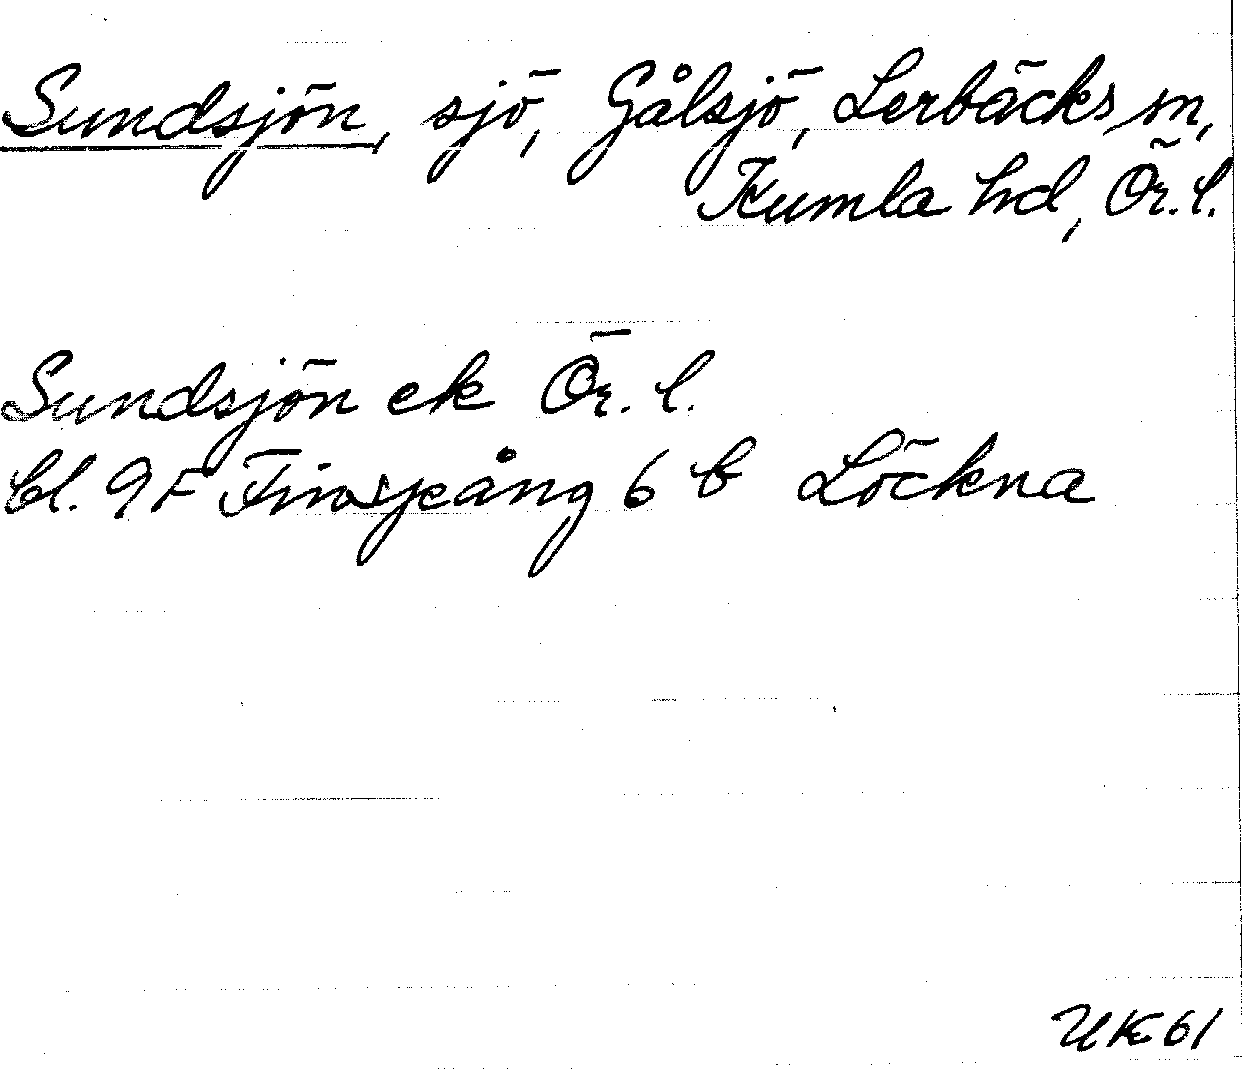 Sundsjön, sjö, Gålsjö, Lerbäcks sn,
Kumla hd, Ör. l.
Sundsjön ek Ör. l.
bl. 9F Finspång 6 b Löckna
UK 61